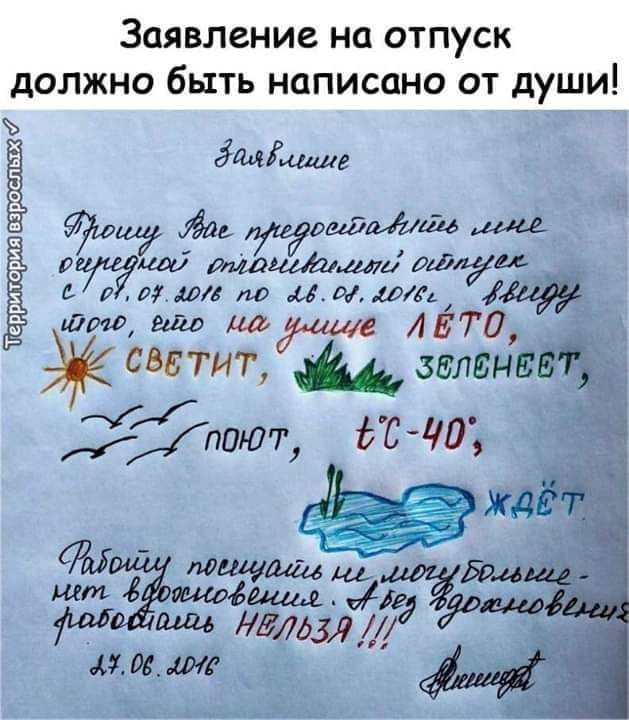 Заявление на отпуск
должно быть написано от души!
Территория взрослых ✓
Заявление
Прошу Вас предоставить мне
очередной оплачиваемый отпуск
с 01.07.2016 по 26.08.2016г, ввиду
того, что на улице ЛЕТО,
СВЕТИТ, ЗЕЛЕНЕЕТ,
ПОЮТ, t°C-40°,
ЖДЁТ
Работу посещать не могу больше -
нет вдохновения. А без вдохновения
работать НЕЛЬЗЯ!!!
27.06.2016